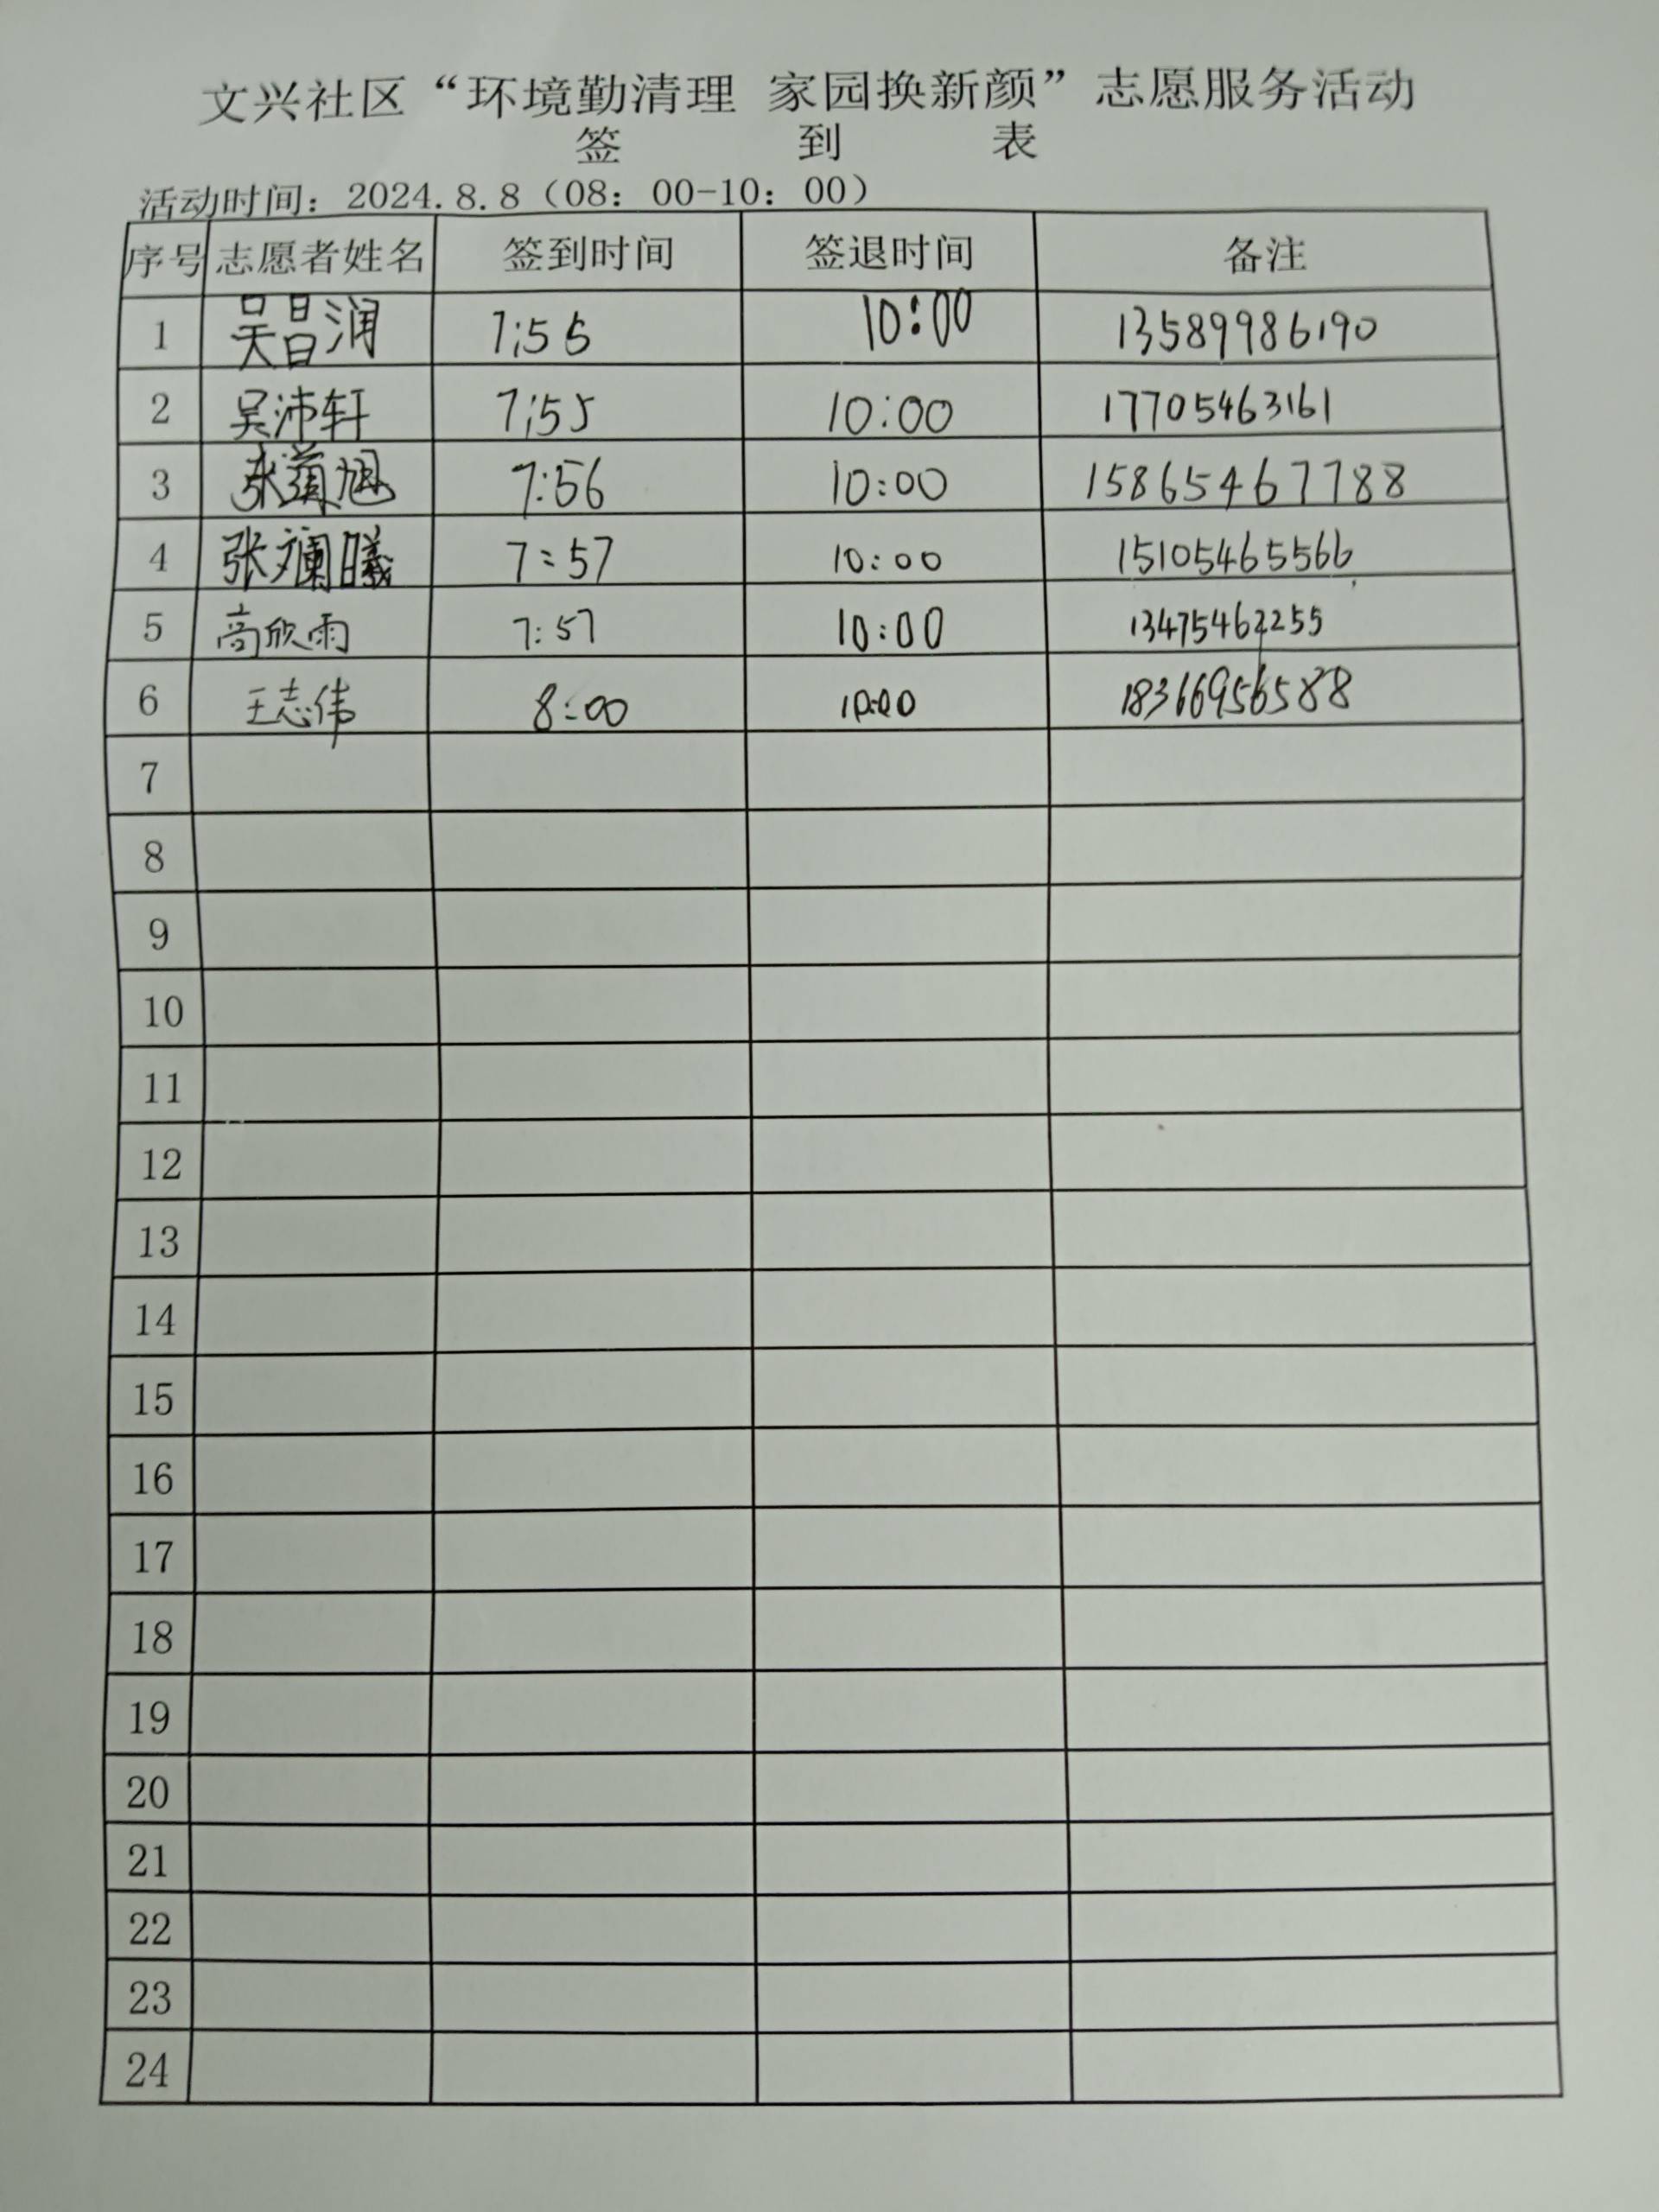 文兴社区“环境勤清理 家园换新颜”志愿服务活动
签 到 表
活动时间：2024.8.8（08：00-10：00）
序号 志愿者姓名 签到时间 签退时间 备注
1 吴昌润 7:55 10:00 13589986190
2 吴沛轩 7:55 10:00 17705463161
3 7:56 10:00 15865467788
4 张斓曦 7:57 10:00 15105465566
5 高欣雨 7:57 10:00
6 王志伟 8:00 10:00 18366956588
7
8
9
10
11
12
13
14
15
16
17
18
19
20
21
22
23
24